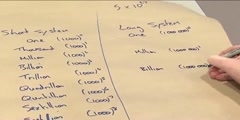 5 × 10
Short System
One (1000)⁰
Thousand (1000)¹
Million (1000)²
Billion (1000)³
Trillion (1000)⁴
Quadrillion (1000)⁵
Quintillion (1000)⁶
Sextillion (1000)⁷
Long System
One (1000 000)⁰
Million (1000 000)¹
Billion (1000000)²